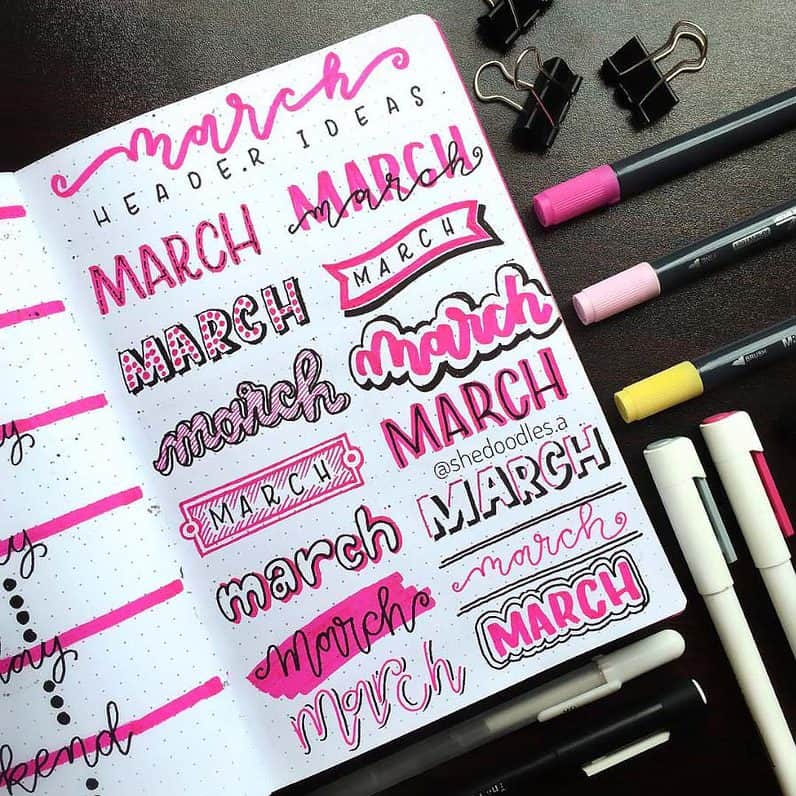 march
HEADER IDEAS
MARCH
MARCH
march
MARCH
MARCH
march
march
MARCH
@shedoodles.a
MARCH
MARCH
march
march
march
MARCH
march
kend
BRUSH